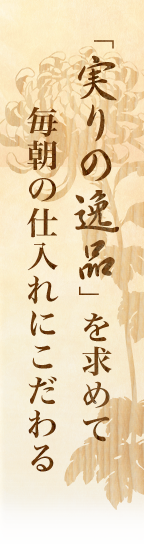 「実りの逸品」を求めて
毎朝の仕入れにこだわる